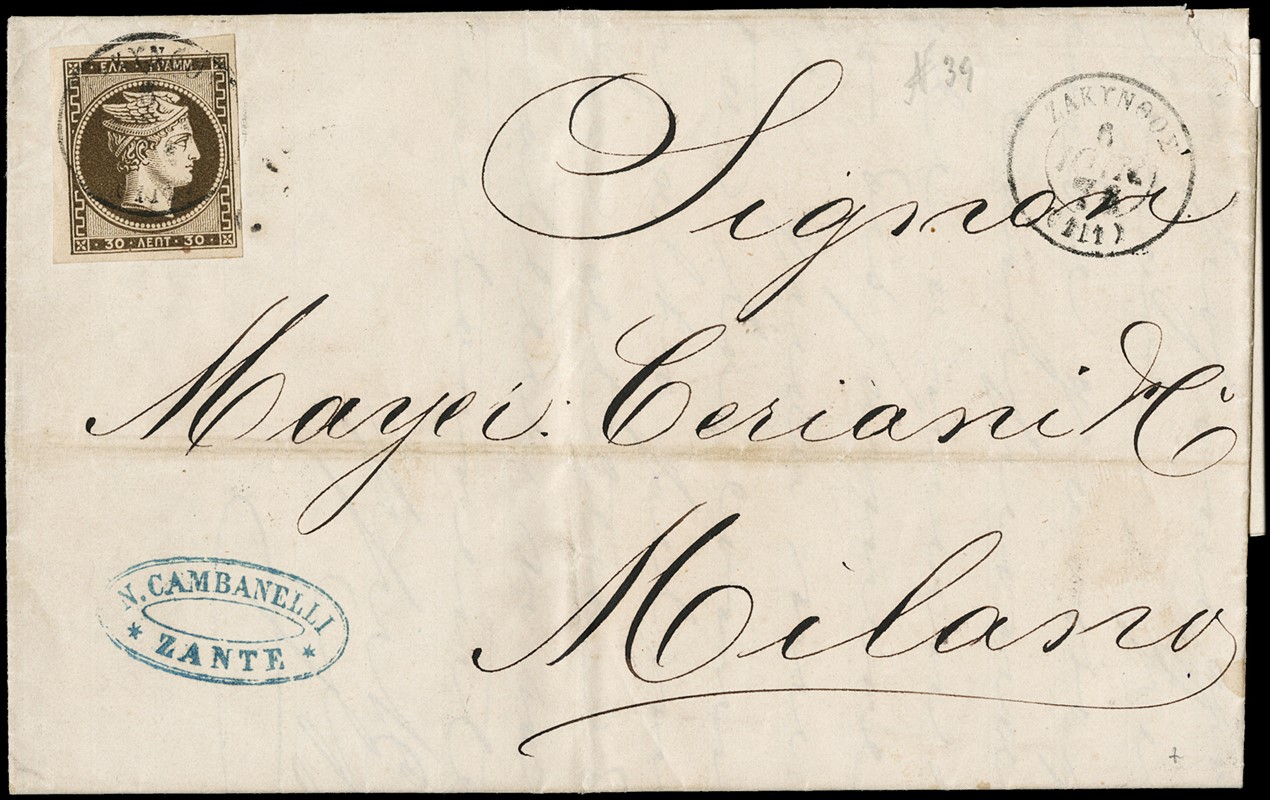 ΕΛΛ. ΓΡΑΜΜ.
30 · ΛΕΠΤ · 30
39
ΖΑΚΥΝΘΟΣ
6
(111)
Signori
Mayer Ceriani & C.
Milano
N. CAMBANELLI
* ZANTE *